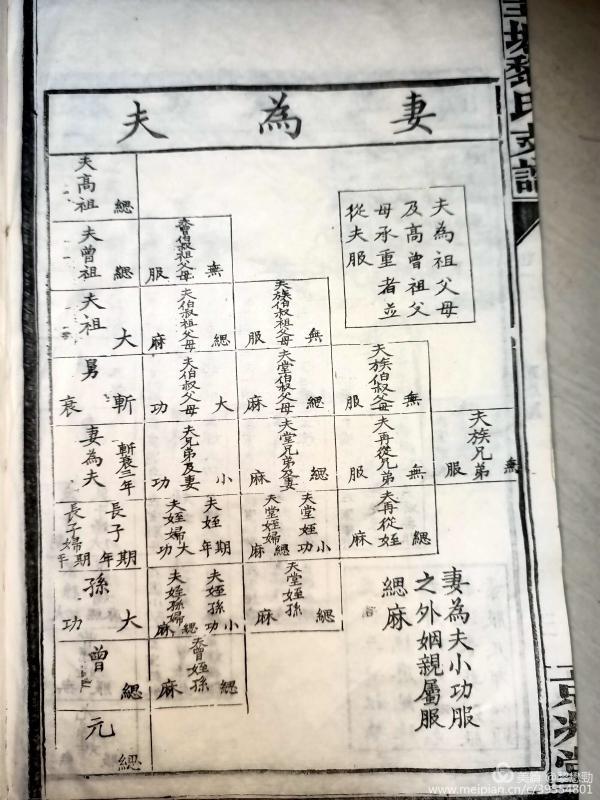 妻為夫
夫為祖父母
及高曾祖父
母承重者並
從夫服
夫高祖
緦
夫曾祖
緦
夫曾伯叔祖父母
無服
夫祖
大
夫伯叔祖父母
緦麻
夫族伯叔祖父母
無服
舅
斬衰
夫伯叔父母
大功
夫堂伯叔父母
緦麻
夫族伯叔父母
無服
妻為夫
斬衰三年
夫兄弟及妻
小功
夫堂兄弟及妻
緦麻
夫再從兄弟
無服
夫族兄弟
無服
長子
期年
長子婦
期年
夫姪
期年
夫姪婦
大功
夫堂姪
小功
夫堂姪婦
緦麻
夫再從姪
緦麻
孫
大功
夫姪孫
小功
夫姪孫婦
緦麻
夫堂姪孫
緦麻
曾
緦
夫曾姪孫
緦麻
元
緦
妻為夫小功服
之外姻親屬服
緦麻
美篇 @黎懋勁
www.meipian.cn/c/39354801